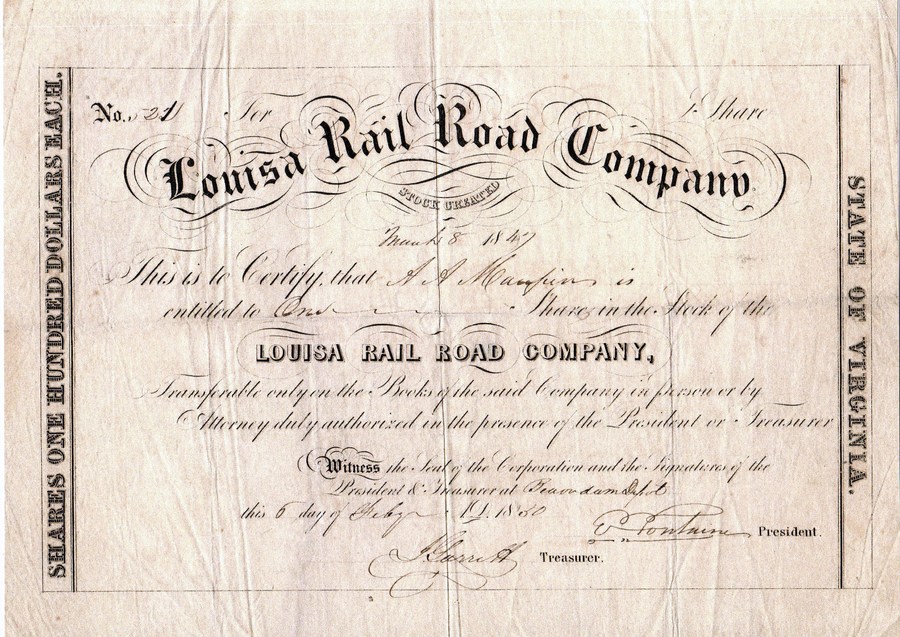 No. 521 For 1 Share
Louisa Rail Road Company
STOCK CREATED
March 8 1847
This is to Certify, that A A Maupin is
entitled to One Share, in the Stock of the
LOUISA RAIL ROAD COMPANY,
Transferable only on the Books of the said Company in person or by
Attorney duly authorized in the presence of the President or Treasurer
Witness the Seal of the Corporation and the Signatures of the
President & Treasurer at Beaverdam Depot
this 6 day of Feby 1850
E. Fontaine President.
J Garrett Treasurer.
SHARES ONE HUNDRED DOLLARS EACH.
STATE OF VIRGINIA.